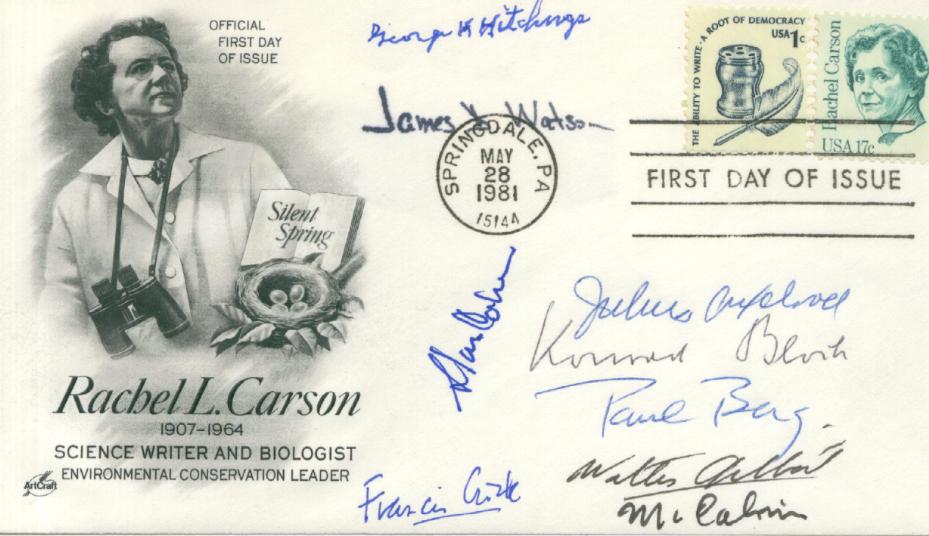 OFFICIAL
FIRST DAY
OF ISSUE
George H Hitchings
James D Watson
THE ABILITY TO WRITE · A ROOT OF DEMOCRACY
USA 1c
Rachel Carson
USA 17c
SPRINGDALE, PA
MAY
28
1981
15144
FIRST DAY OF ISSUE
Silent
Spring
Stan Cohen
Julius Axelrod
Konrad Bloch
Paul Berg
Walter Gilbert
M Calvin
Francis Crick
Rachel L. Carson
1907-1964
SCIENCE WRITER AND BIOLOGIST
ENVIRONMENTAL CONSERVATION LEADER
ArtCraft